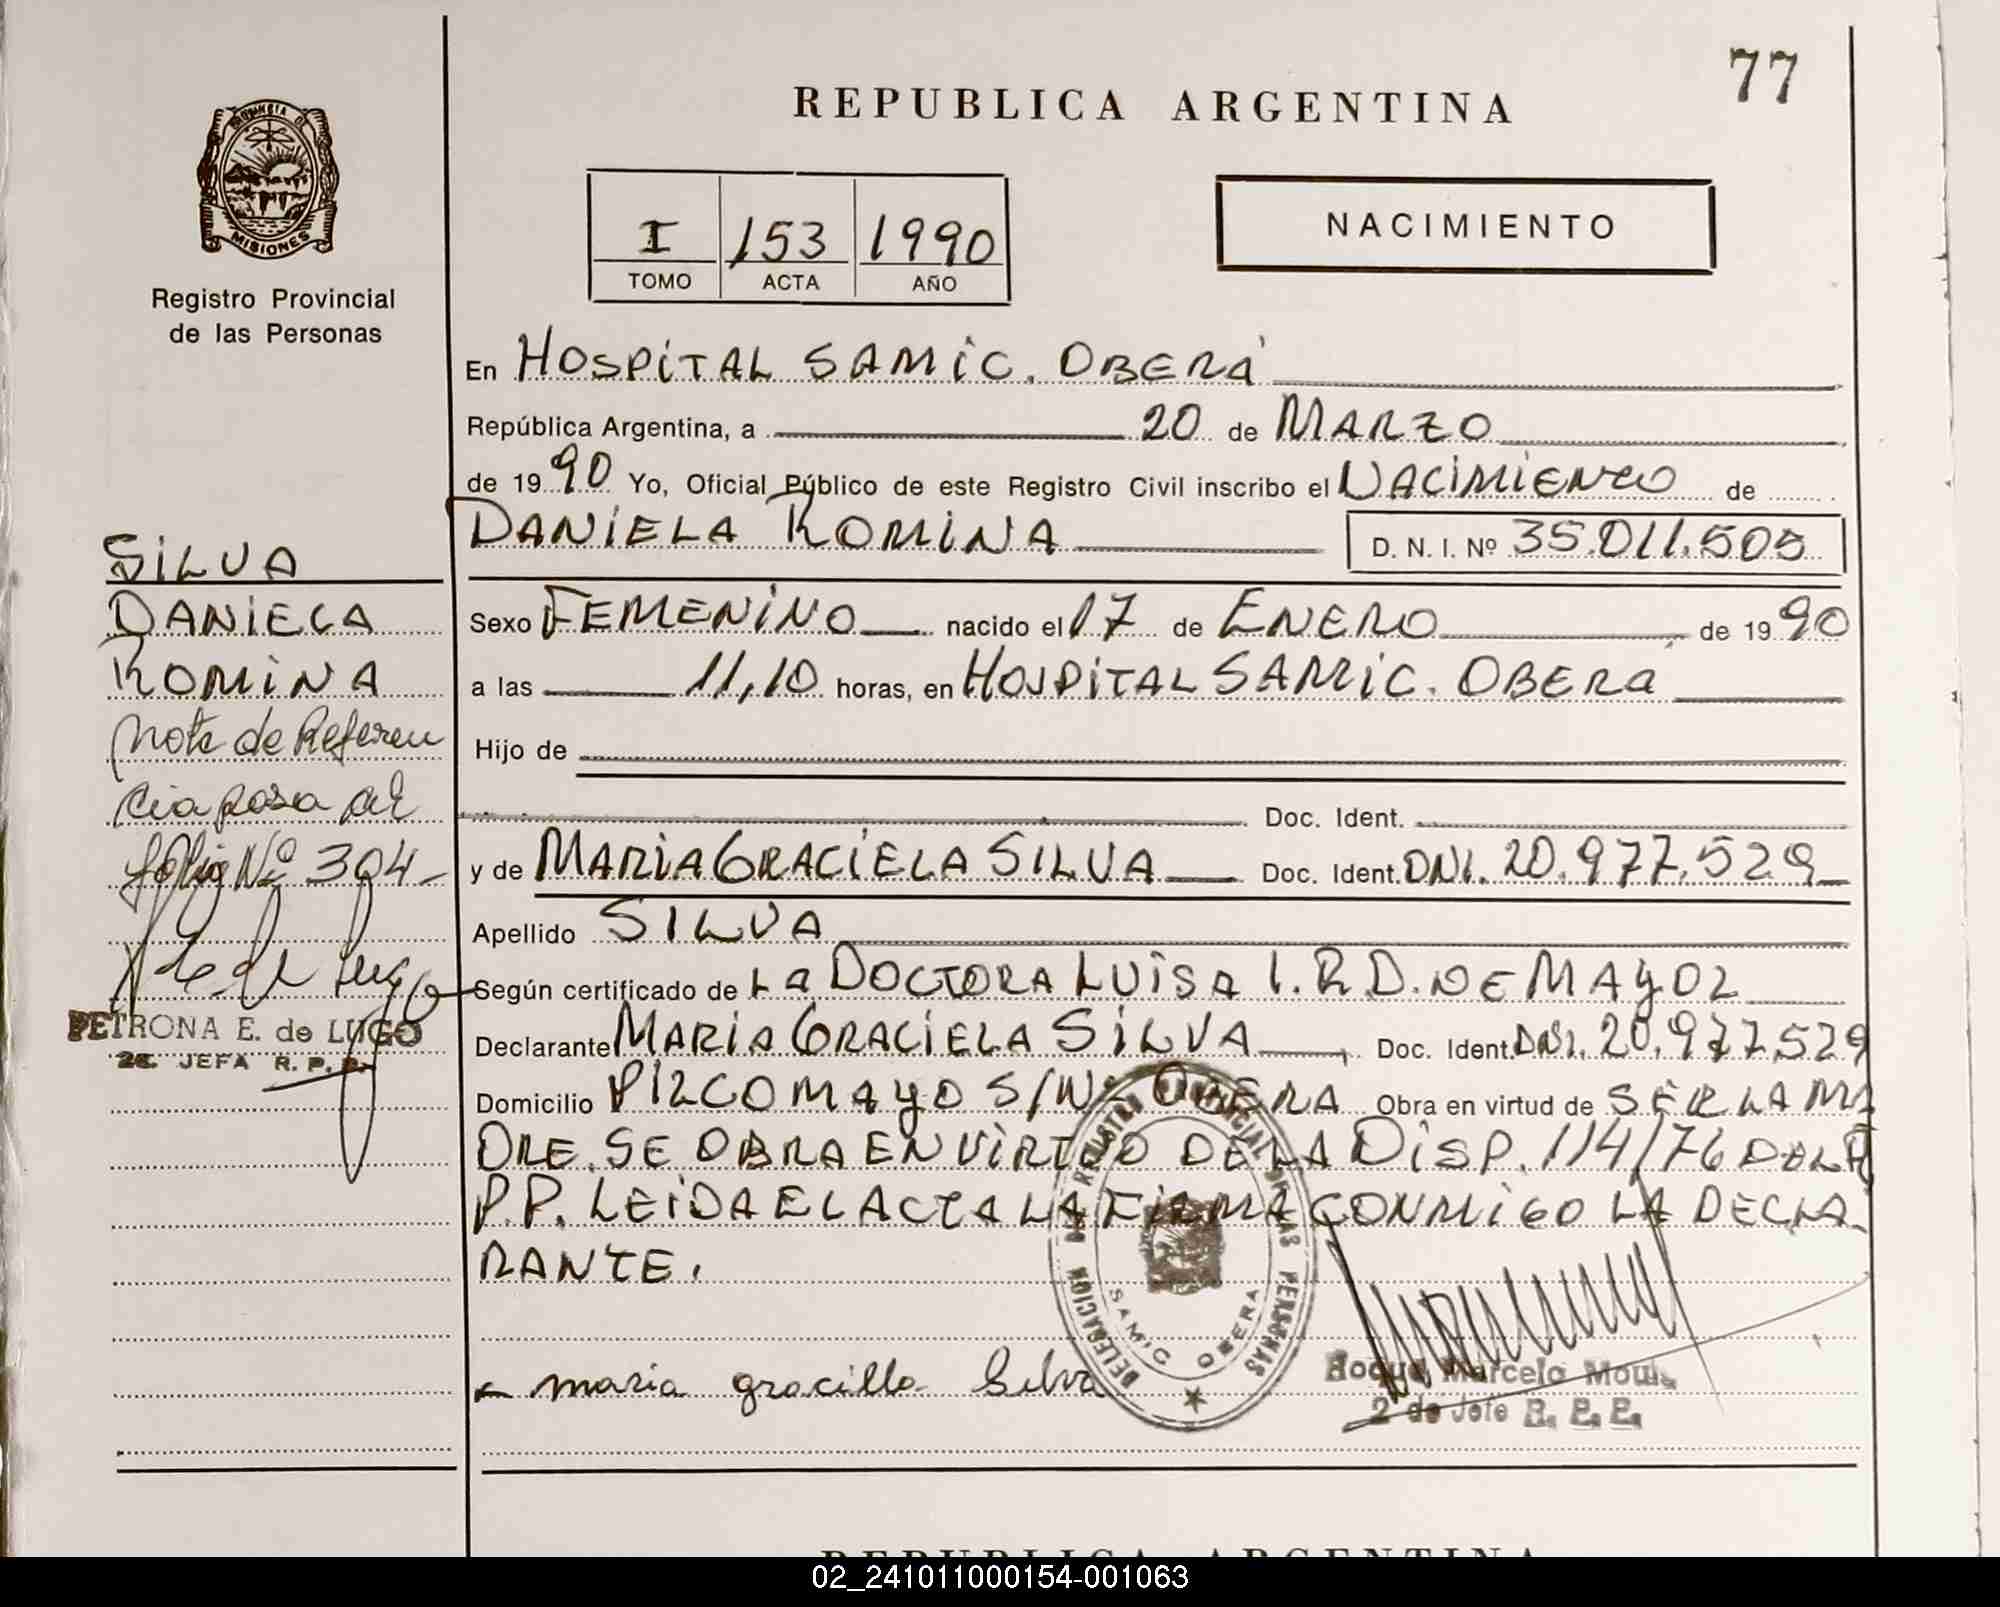 77
REPUBLICA ARGENTINA
PROVINCIA D
MISIONES
Registro Provincial
de las Personas
I 153 1990
TOMO ACTA AÑO
NACIMIENTO
En HOSPITAL SAMIC. OBERÁ
República Argentina, a 20 de MARZO
de 1990 Yo, Oficial Público de este Registro Civil inscribo el NACIMIENTO de
DANIELA ROMINA D. N. I. Nº 35.011.505
Sexo FEMENINO nacido el 17 de ENERO de 1990
a las 11,10 horas, en HOSPITAL SAMIC. OBERA
Hijo de
Doc. Ident.
y de MARIA GRACIELA SILVA Doc. Ident. DNI. 20.977.529
Apellido SILVA
Según certificado de LA DOCTORA LUISA I. R. D. DE MAYOL
Declarante MARIA GRACIELA SILVA Doc. Ident. DNI. 20.977.529
Domicilio PILCOMAYO S/Nº OBERA Obra en virtud de SER LA MA
DRE. SE OBRA EN VIRTUD DE LA DISP. 114/76 DEL R
P.P. LEIDA EL ACTA LA FIRMA CONMIGO LA DECLA
RANTE.
maria gracilla Silva
SILVA
DANIELA
ROMINA
Nota de Referen
cia pasa al
folio Nº 304-
PETRONA E. de LUGO
2a. JEFA R. P. P.
DELEGACION DEL REGISTRO PROVINCIAL DE LAS PERSONAS
SAMIC OBERA
Roque Marcelo
2 do Jefe R. P. P.
REPUBLICA ARGENTINA
02_241011000154-001063